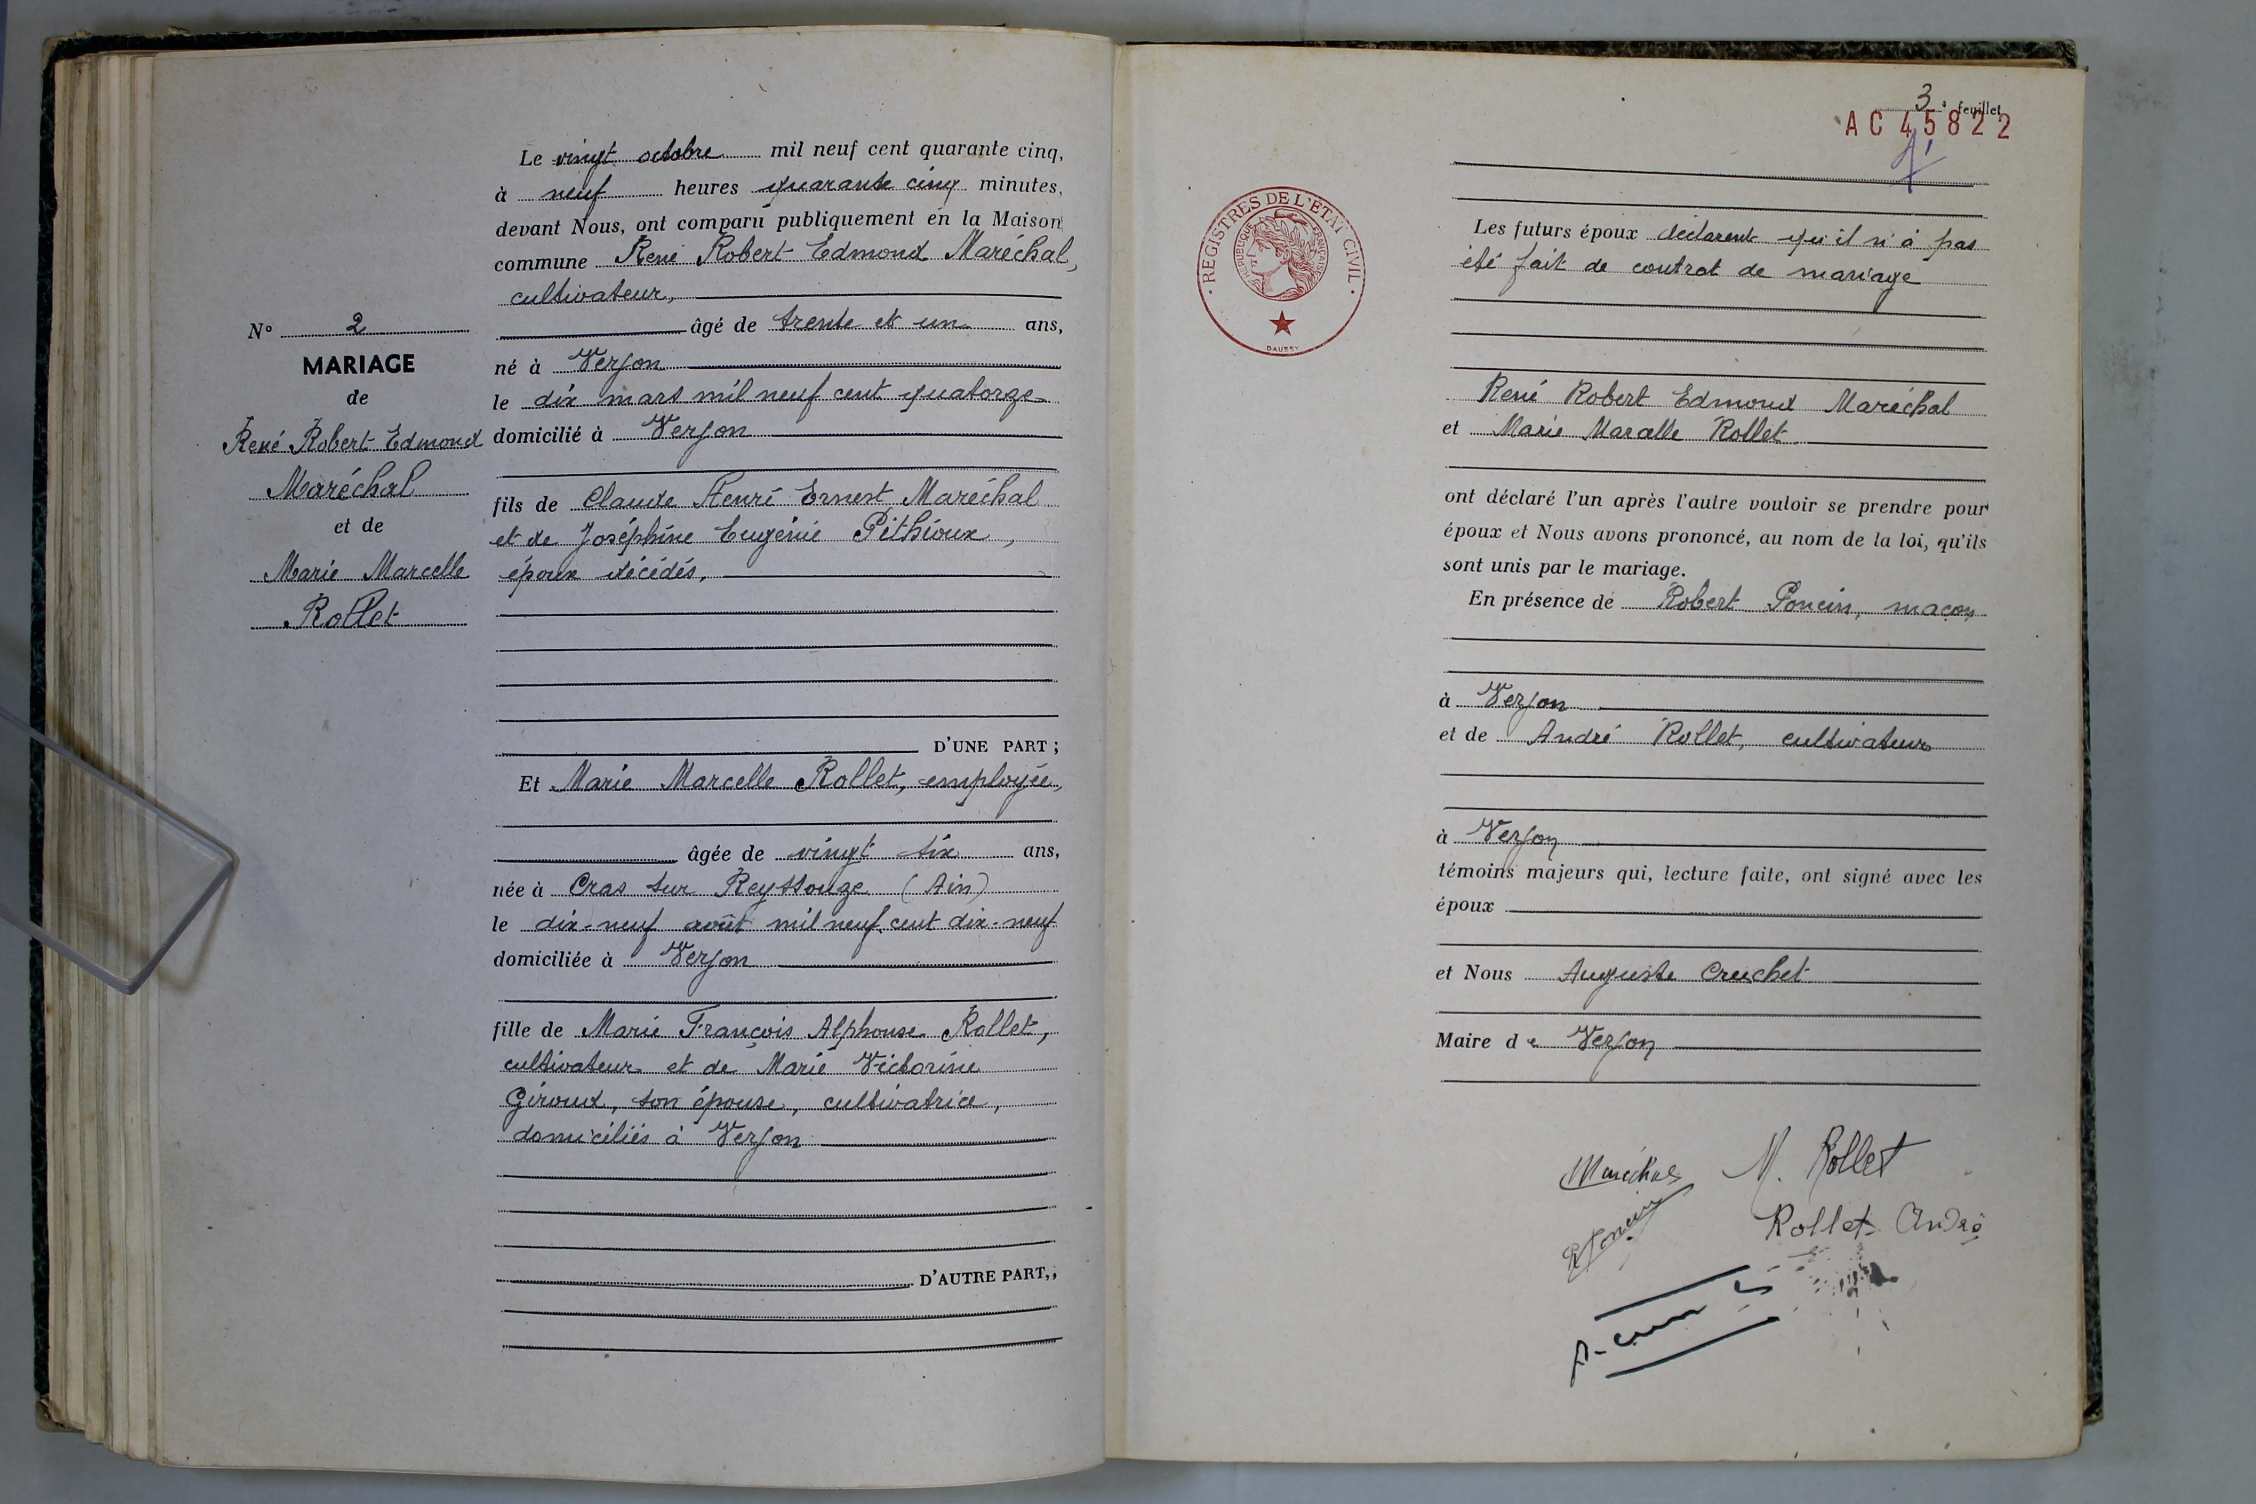 Le vingt octobre mil neuf cent quarante cinq,
à neuf heures quarante cinq minutes,
devant Nous, ont comparu publiquement en la Maison
commune René Robert Edmond Maréchal,
cultivateur,
âgé de trente et un ans,
né à Verjon
le dix mars mil neuf cent quatorze
domicilié à Verjon
fils de Claude Henri Ernest Maréchal
et de Joséphine Eugénie Pithioux,
époux décédés,
D'UNE PART ;
Et Marie Marcelle Rollet, employée,
âgée de vingt six ans,
née à Cras sur Reyssouze (Ain)
le dix-neuf août mil neuf cent dix-neuf
domiciliée à Verjon
fille de Marie François Alphonse Rollet,
cultivateur et de Marie Victorine
Giroud, son épouse, cultivatrice,
domiciliés à Verjon
D'AUTRE PART,,
N° 2
MARIAGE
de
René Robert Edmond
Maréchal
et de
Marie Marcelle
Rollet
3e feuillet
AC 45822
REGISTRES DE L'ETAT CIVIL
REPUBLIQUE FRANÇAISE
DAUSSY
Les futurs époux déclarent qu'il n'a pas
été fait de contrat de mariage
René Robert Edmond Maréchal
et Marie Marcelle Rollet
ont déclaré l'un après l'autre vouloir se prendre pour
époux et Nous avons prononcé, au nom de la loi, qu'ils
sont unis par le mariage.
En présence de Robert Poncin, maçon
à Verjon
et de André Rollet, cultivateur
à Verjon
témoins majeurs qui, lecture faite, ont signé avec les
époux
et Nous Auguste Cruchet
Maire de Verjon
Maréchal M. Rollet
R Poncin Rollet André